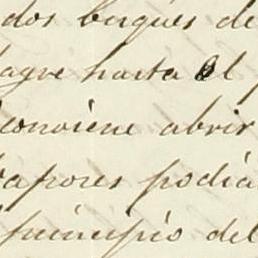 dos buques de
agre hasta el
conviene abrir
vapores podia
principio del